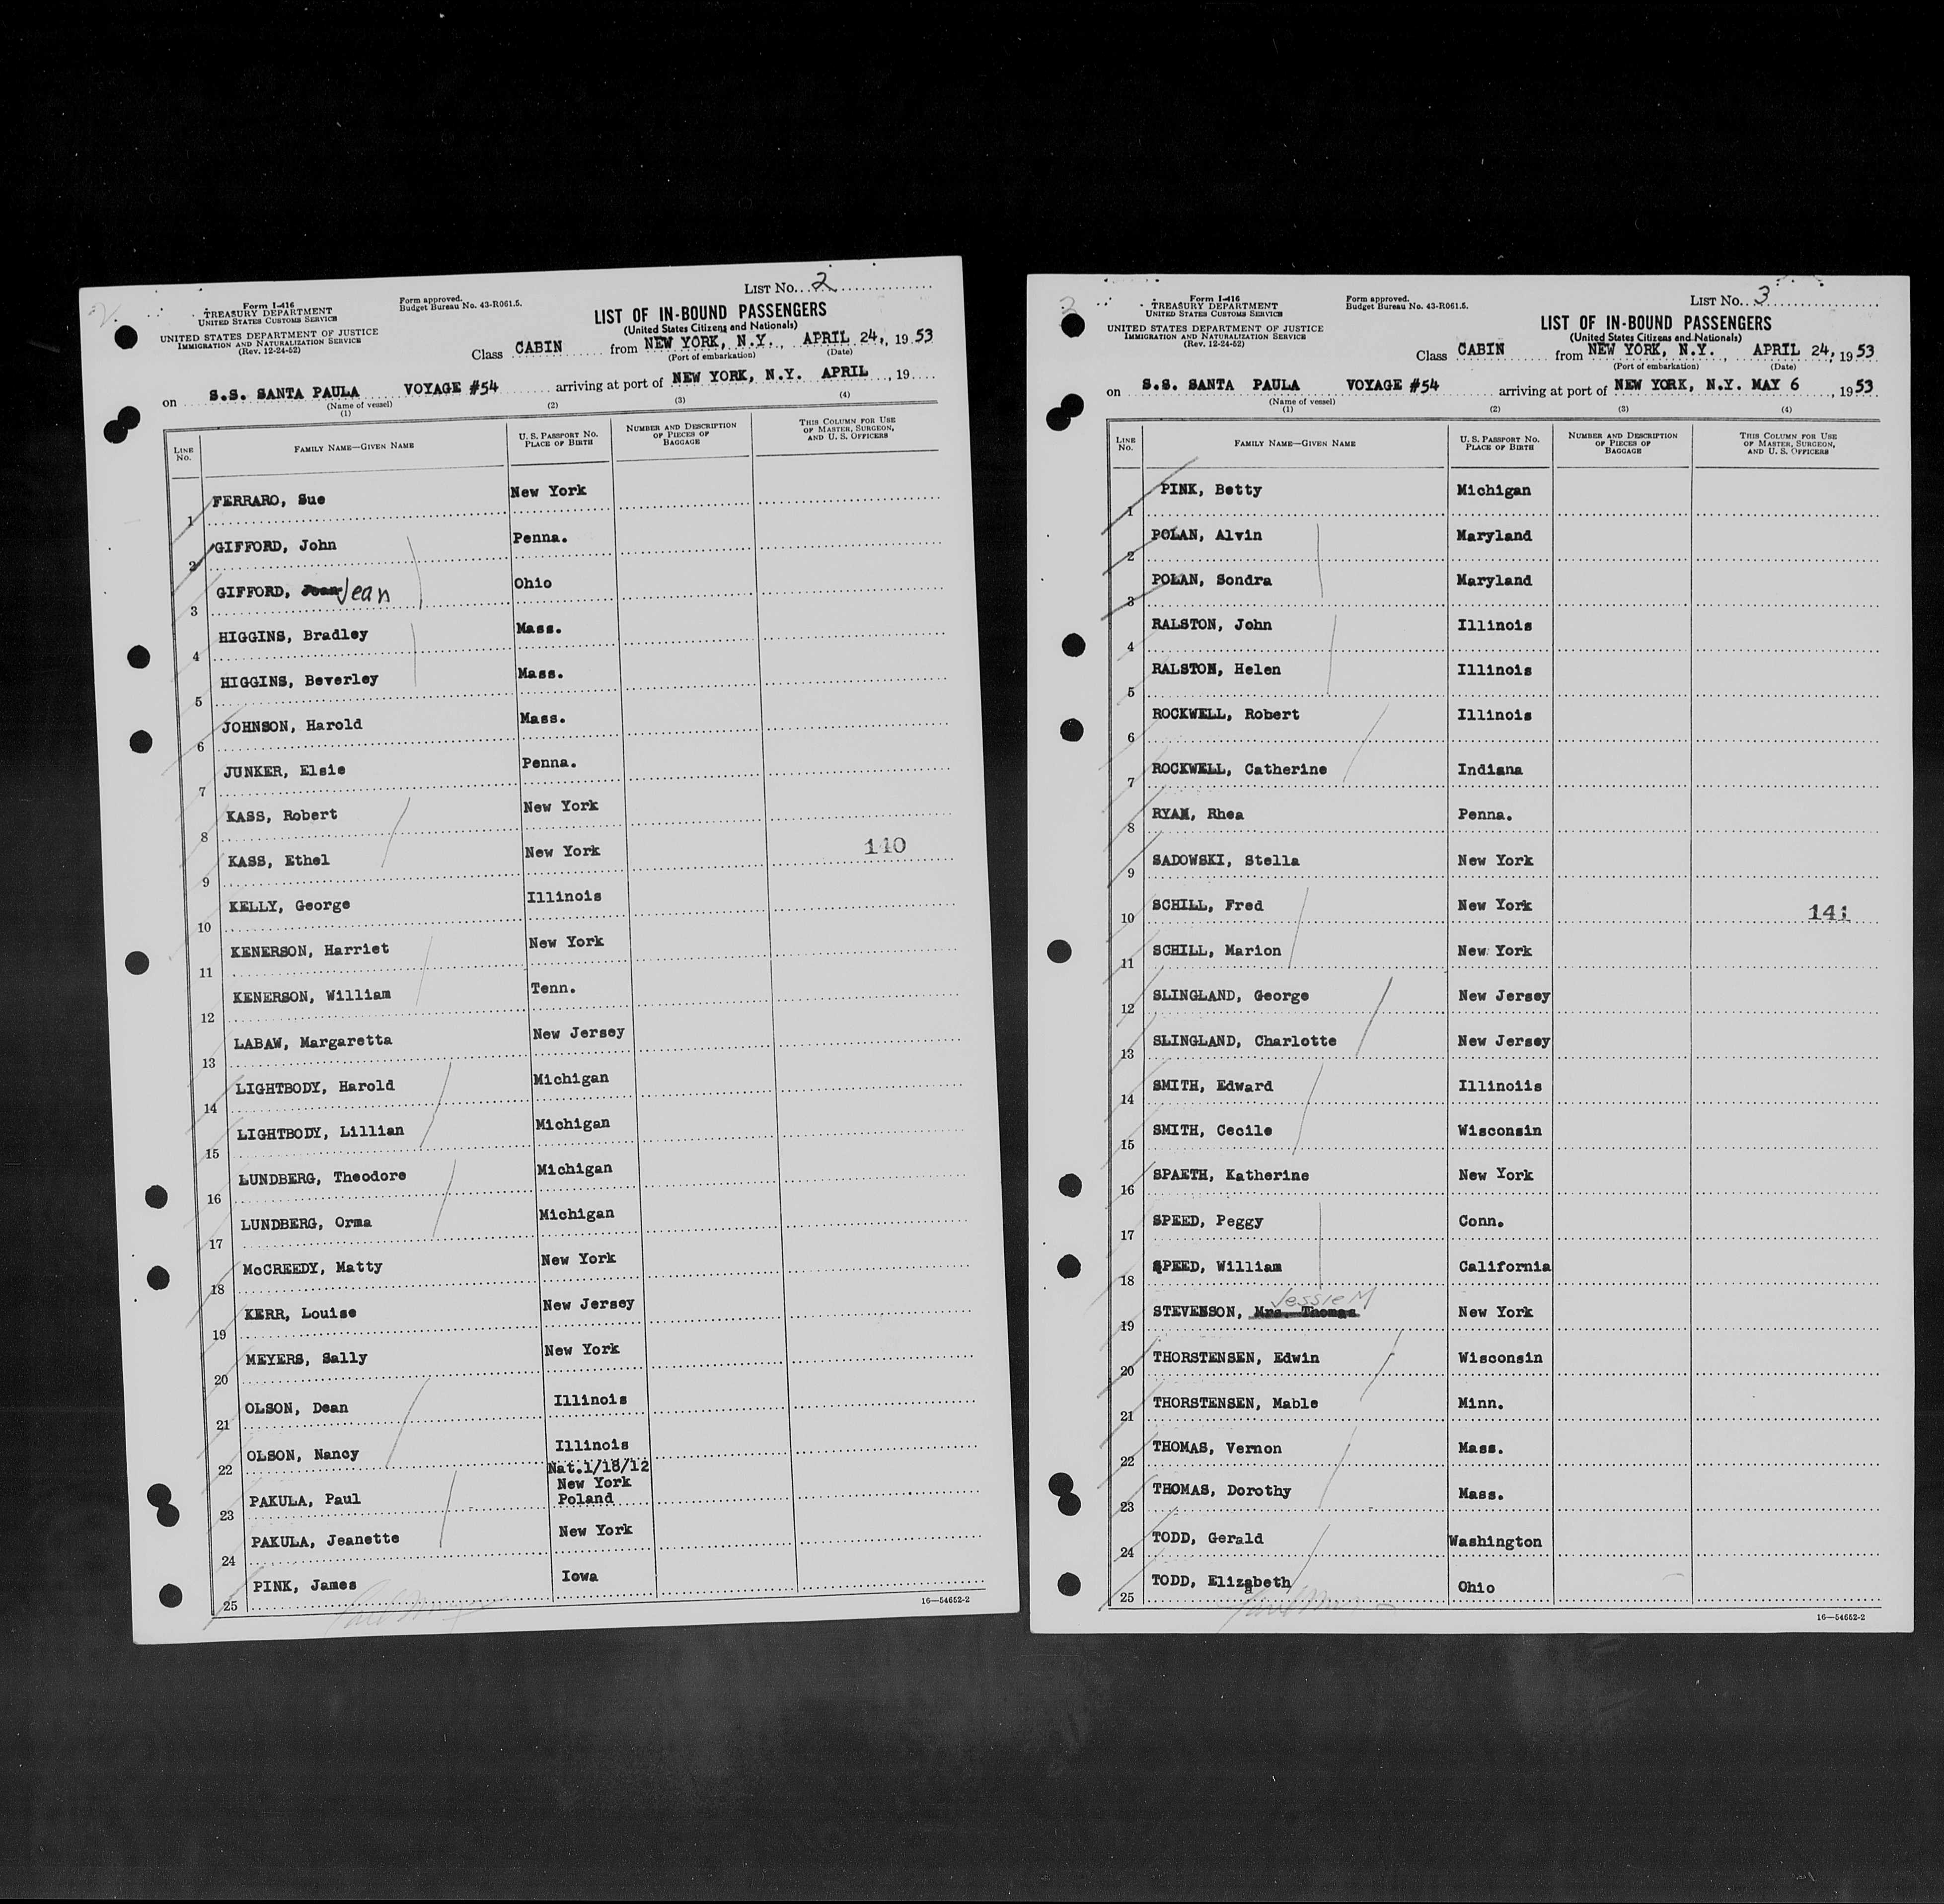 LIST No. 2
Form I-416
TREASURY DEPARTMENT
UNITED STATES CUSTOMS SERVICE
UNITED STATES DEPARTMENT OF JUSTICE
IMMIGRATION AND NATURALIZATION SERVICE
(Rev. 12-24-52)
Form approved.
Budget Bureau No. 43-R061.5.
LIST OF IN-BOUND PASSENGERS
(United States Citizens and Nationals)
Class CABIN from NEW YORK, N.Y., APRIL 24, 1953
(Port of embarkation) (Date)
on S.S. SANTA PAULA VOYAGE #54 arriving at port of NEW YORK, N.Y. APRIL , 19
(Name of vessel)
(1) (2) (3) (4)
LINE No. FAMILY NAME—GIVEN NAME U. S. PASSPORT NO. PLACE OF BIRTH NUMBER AND DESCRIPTION OF PIECES OF BAGGAGE THIS COLUMN FOR USE OF MASTER, SURGEON, AND U. S. OFFICERS
1 FERRARO, Sue New York
2 GIFFORD, John Penna.
3 GIFFORD, Jean Ohio
4 HIGGINS, Bradley Mass.
5 HIGGINS, Beverley Mass.
6 JOHNSON, Harold Mass.
7 JUNKER, Elsie Penna.
8 KASS, Robert New York
9 KASS, Ethel New York 140
10 KELLY, George Illinois
11 KENERSON, Harriet New York
12 KENERSON, William Tenn.
13 LABAW, Margaretta New Jersey
14 LIGHTBODY, Harold Michigan
15 LIGHTBODY, Lillian Michigan
16 LUNDBERG, Theodore Michigan
17 LUNDBERG, Orma Michigan
18 McCREEDY, Matty New York
19 KERR, Louise New Jersey
20 MEYERS, Sally New York
21 OLSON, Dean Illinois
22 OLSON, Nancy Illinois
Nat.1/18/12
New York
23 PAKULA, Paul Poland
24 PAKULA, Jeanette New York
25 PINK, James Iowa
16—54652-2
LIST No. 3
Form I-416
TREASURY DEPARTMENT
UNITED STATES CUSTOMS SERVICE
UNITED STATES DEPARTMENT OF JUSTICE
IMMIGRATION AND NATURALIZATION SERVICE
(Rev. 12-24-52)
Form approved.
Budget Bureau No. 43-R061.5.
LIST OF IN-BOUND PASSENGERS
(United States Citizens and Nationals)
Class CABIN from NEW YORK, N.Y., APRIL 24, 1953
(Port of embarkation) (Date)
on S.S. SANTA PAULA VOYAGE #54 arriving at port of NEW YORK, N.Y. MAY 6, 1953
(Name of vessel)
(1) (2) (3) (4)
LINE No. FAMILY NAME—GIVEN NAME U. S. PASSPORT NO. PLACE OF BIRTH NUMBER AND DESCRIPTION OF PIECES OF BAGGAGE THIS COLUMN FOR USE OF MASTER, SURGEON, AND U. S. OFFICERS
1 PINK, Betty Michigan
2 POLAN, Alvin Maryland
3 POLAN, Sondra Maryland
4 RALSTON, John Illinois
5 RALSTON, Helen Illinois
6 ROCKWELL, Robert Illinois
7 ROCKWELL, Catherine Indiana
8 RYAN, Rhea Penna.
9 SADOWSKI, Stella New York
10 SCHILL, Fred New York 141
11 SCHILL, Marion New York
12 SLINGLAND, George New Jersey
13 SLINGLAND, Charlotte New Jersey
14 SMITH, Edward Illinoiis
15 SMITH, Cecile Wisconsin
16 SPAETH, Katherine New York
17 SPEED, Peggy Conn.
18 SPEED, William California
Jessie M
19 STEVENSON, Mrs. Thomas New York
20 THORSTENSEN, Edwin Wisconsin
21 THORSTENSEN, Mable Minn.
22 THOMAS, Vernon Mass.
23 THOMAS, Dorothy Mass.
24 TODD, Gerald Washington
25 TODD, Elizabeth Ohio
16—54652-2